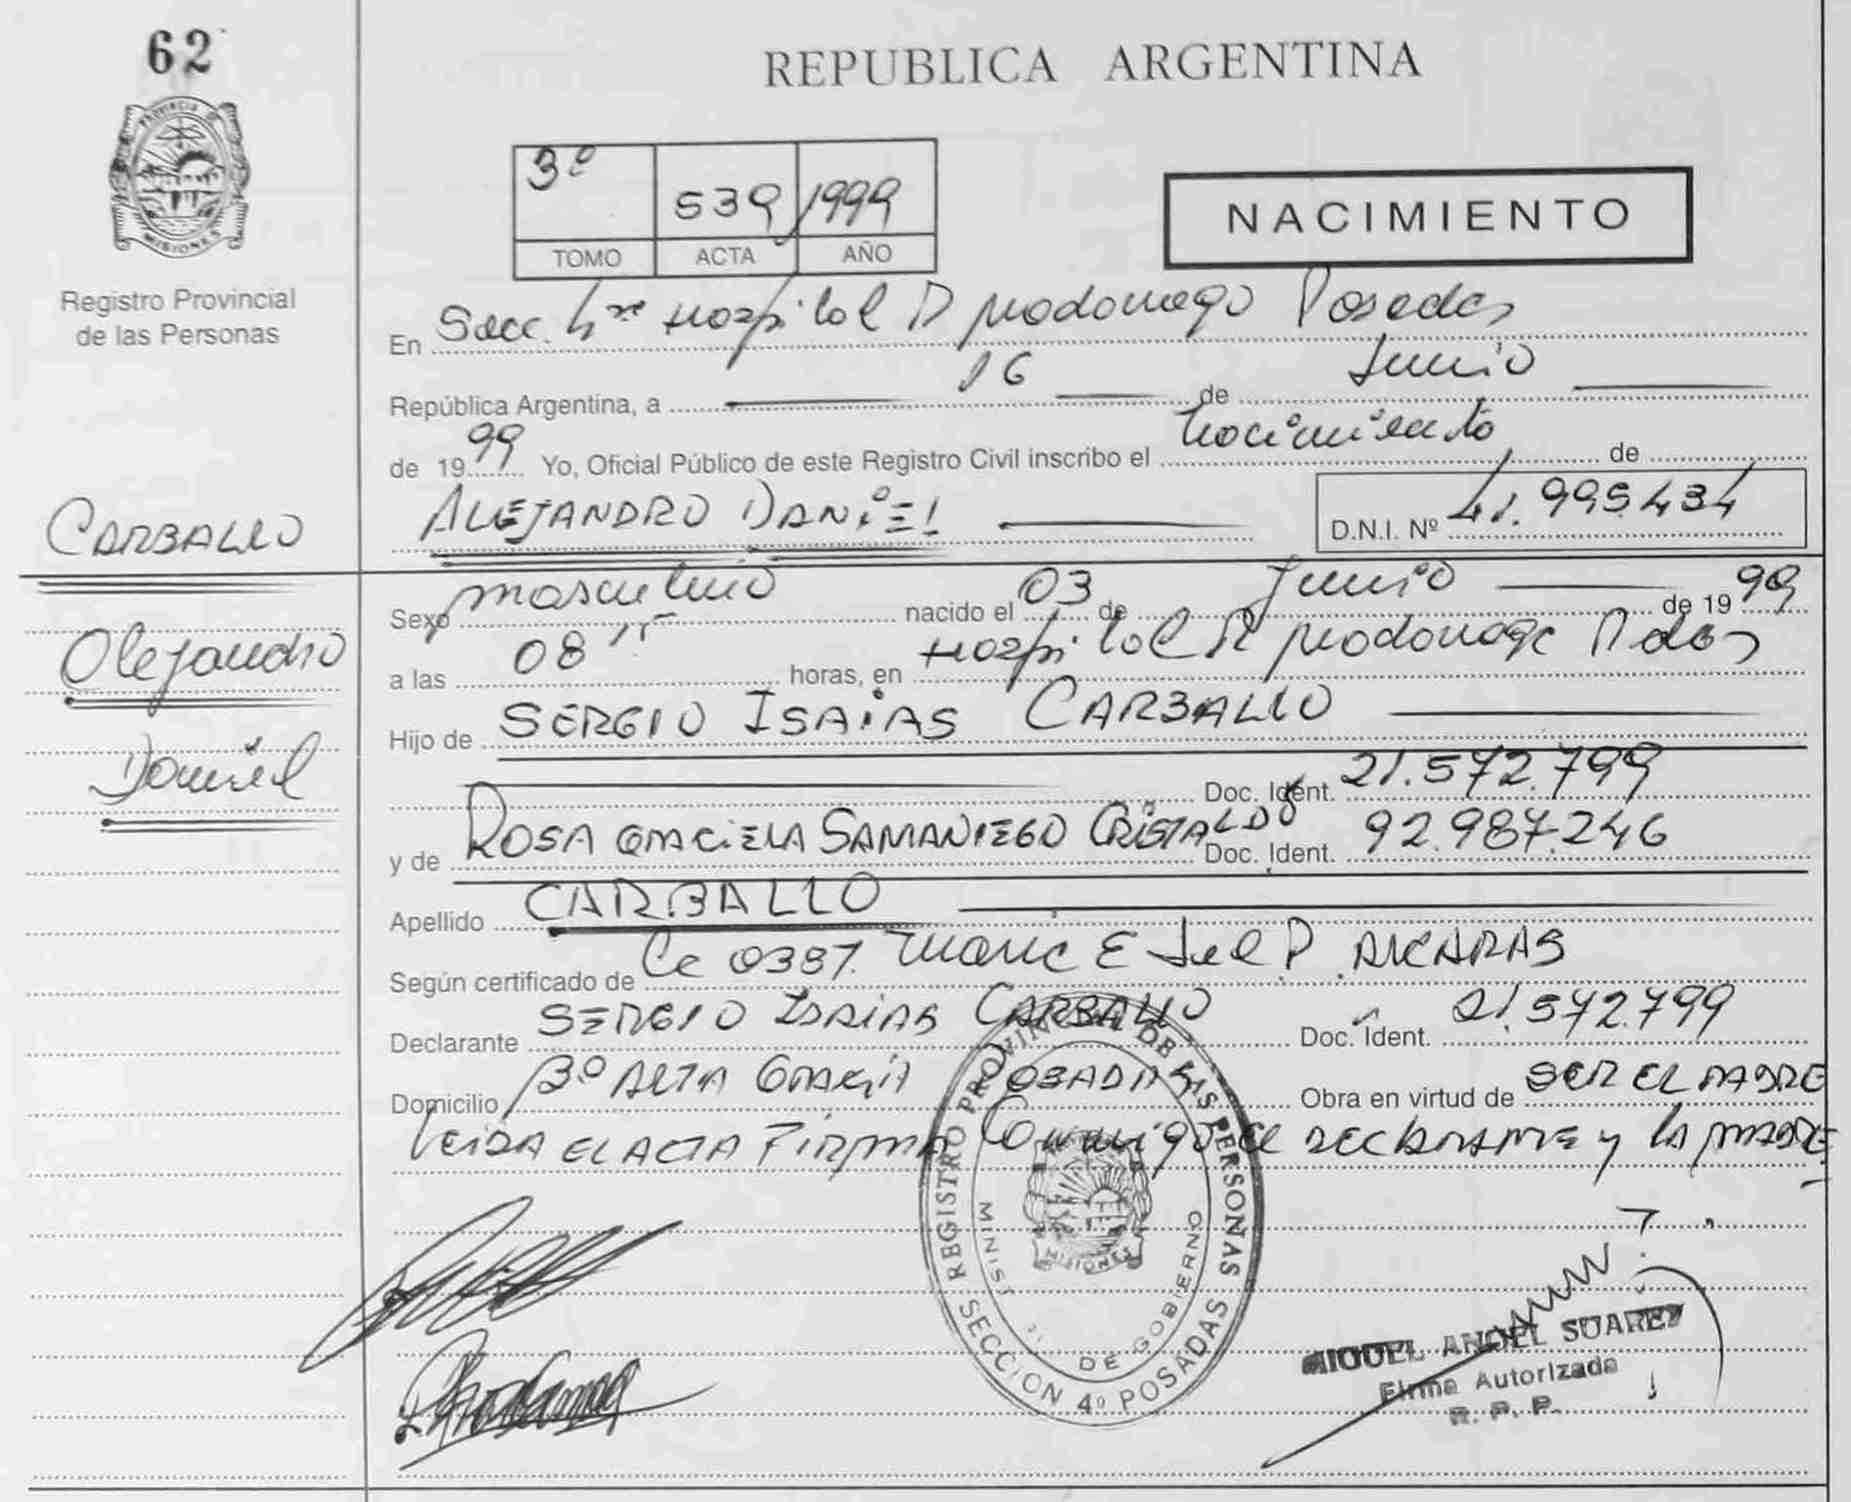 62
PROVINCIA DE
MISIONES
Registro Provincial
de las Personas
CARBALLO
Alejandro
Daniel
REPUBLICA ARGENTINA
3º 539 1999
TOMO ACTA AÑO
NACIMIENTO
En Secc. 4ta Hospital R Madariaga Posadas
República Argentina, a 16 de Junio
de 1999 Yo, Oficial Público de este Registro Civil inscribo el nacimiento de
ALEJANDRO DANIEL D.N.I. Nº 41.995.434
Sexo masculino nacido el 03 de Junio de 1999
a las 08 15 horas, en Hospital R Madariaga Pdas
Hijo de SERGIO ISAIAS CARBALLO
Doc. Ident. 21.572.799
y de ROSA GRACIELA SAMANIEGO CRISTALDO Doc. Ident. 92.987.246
Apellido CARBALLO
Según certificado de Ce 0387. P. ALCARAS
Declarante SERGIO ISAIAS CARBALLO Doc. Ident. 21.572.799
Domicilio Bº ALTA GRACIA POSADAS Obra en virtud de SER EL PADRE
LEIDA EL ACTA FIRMA Conmigo el DECLARANTE y LA MADRE
REGISTRO PROVINCIAL DE LAS PERSONAS
MINIST DE GOBIERNO
MISIONES
SECCION 4º POSADAS
MIGUEL ANGEL SUAREZ
Firma Autorizada
R. P. P.